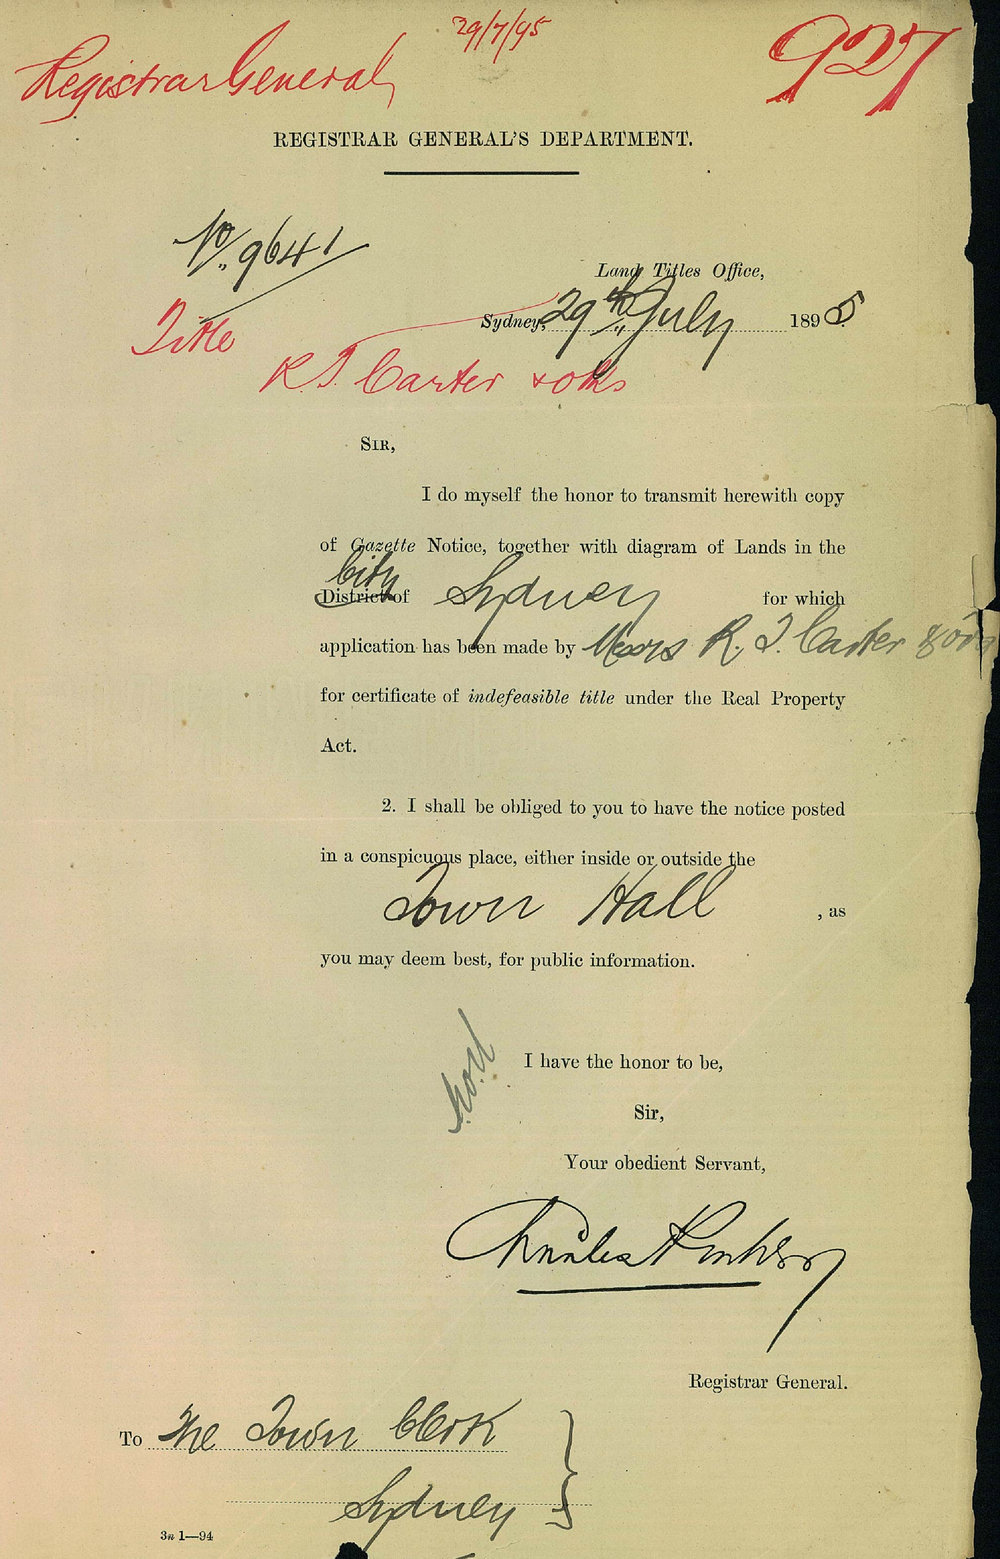 29/7/95
927
Registrar General
REGISTRAR GENERAL'S DEPARTMENT.
No. 9641
Land Titles Office,
Sydney, 29th July 1895
Title
R. J. Carter & ors
SIR,
I do myself the honor to transmit herewith copy
of Gazette Notice, together with diagram of Lands in the
City
District of Sydney for which
application has been made by Messrs R. J. Carter & ors
for certificate of indefeasible title under the Real Property
Act.
2. I shall be obliged to you to have the notice posted
in a conspicuous place, either inside or outside the
Town Hall , as
you may deem best, for public information.
I have the honor to be,
Sir,
Your obedient Servant,
Charles
Registrar General.
To The Town Clerk
Sydney
3n 1—94